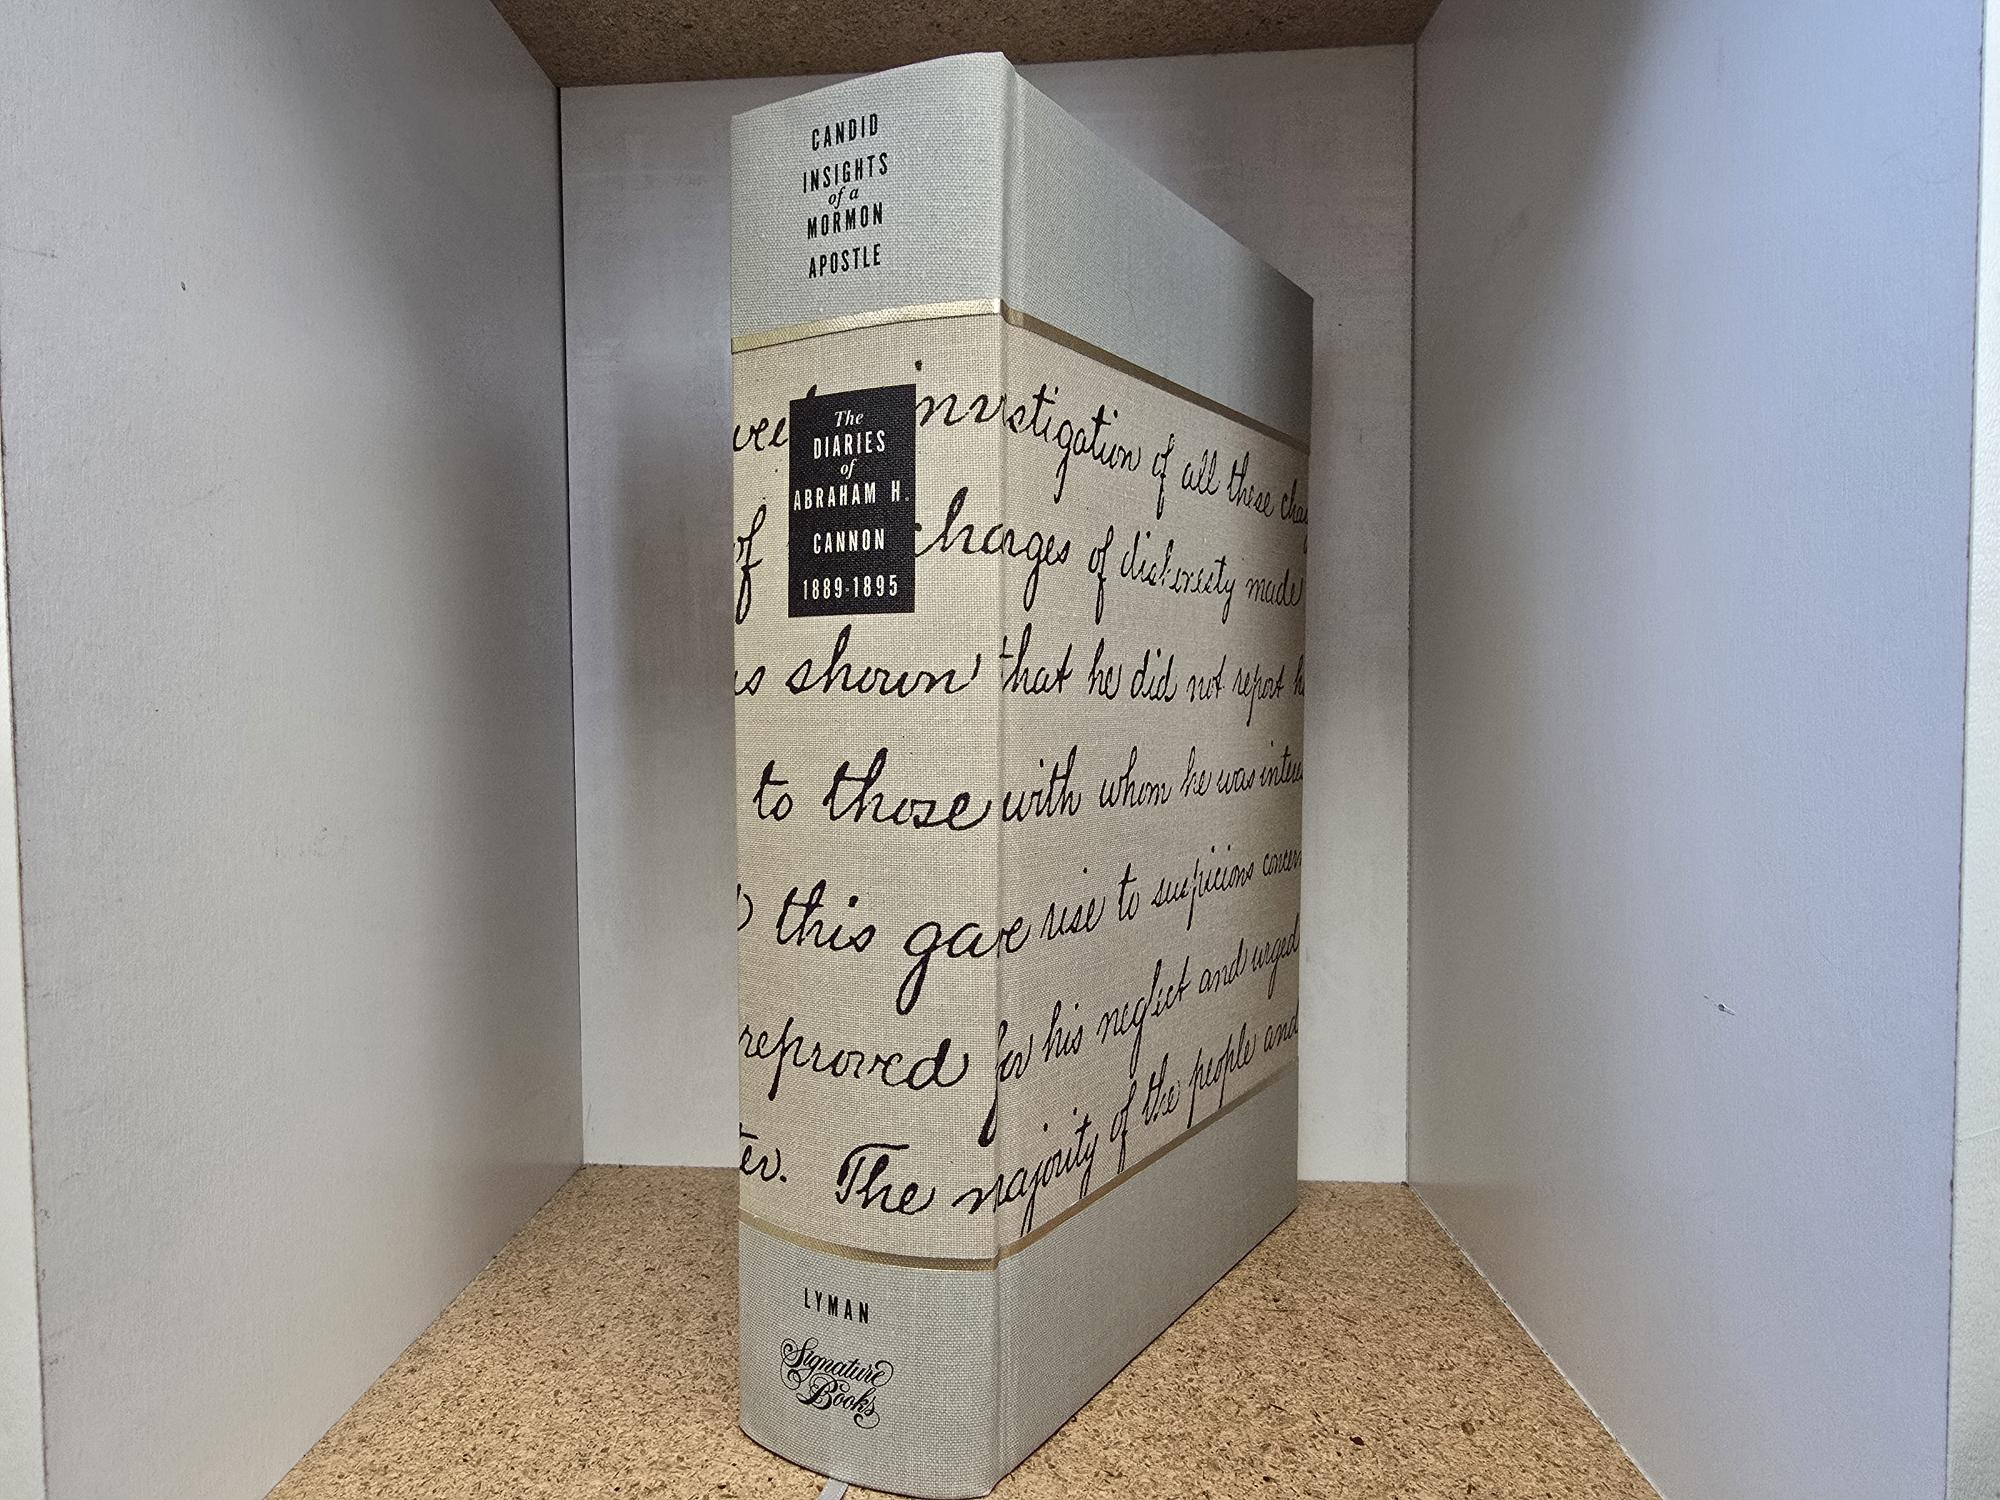 CANDID
INSIGHTS
of a
MORMON
APOSTLE
The
DIARIES
of
ABRAHAM H.
CANNON
1889-1895
investigation of all these
of charges of dishonesty made
shown that he did not report
to those with whom he was
this gave rise to suspicions
reproved for his neglect and urged
The majority of the people and
LYMAN
Signature
Books